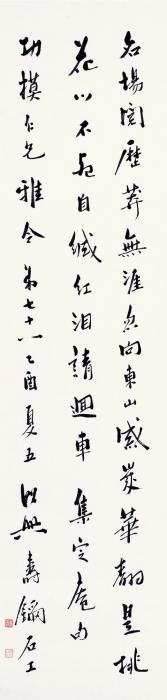 名場閱歷莽無涯忽向東山感歲華翻是桃
花心不死自緘紅淚請迴車 集定庵句
功模仁兄雅令弟七十六乙酉夏五 壽鉨石工